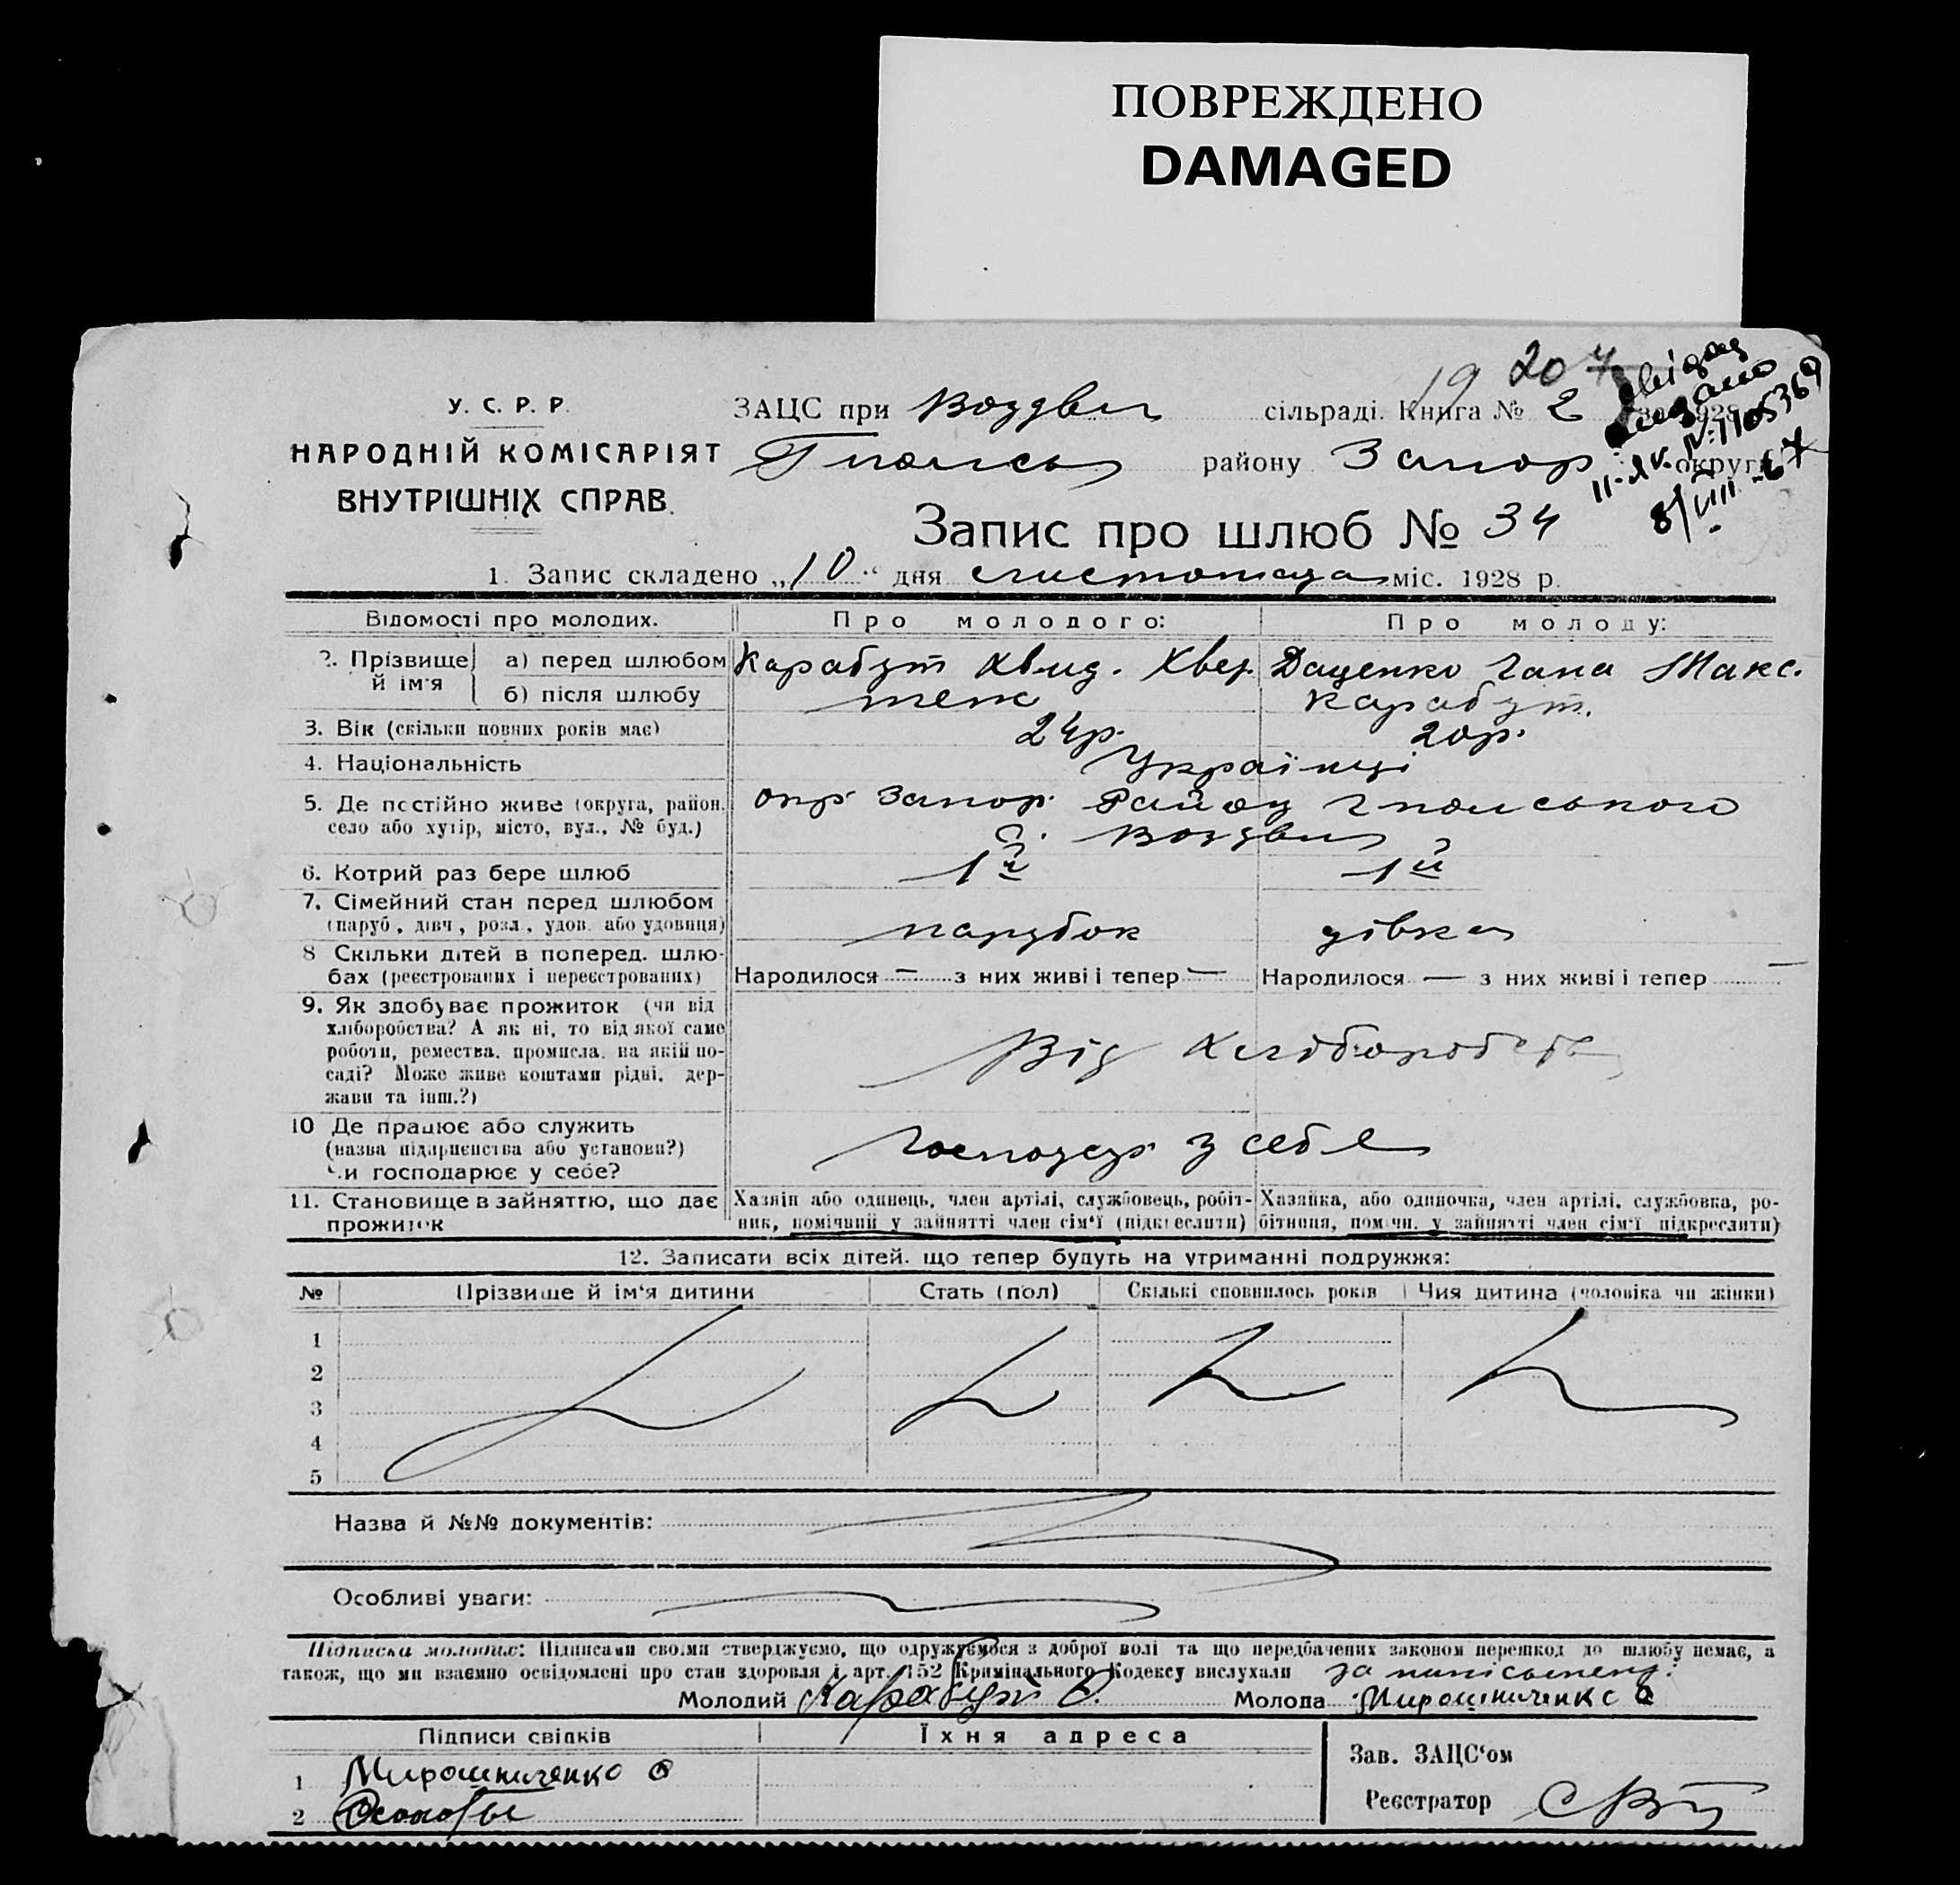 ПОВРЕЖДЕНО
DAMAGED
19 20
У. С. Р. Р.
НАРОДНІЙ КОМІСАРІЯТ
ВНУТРІШНІХ СПРАВ.
ЗАЦС при Воздвиж сільраді. Книга № 2 1928
району Запор. округи
№ 1105369
8/VIII-67
Запис про шлюб № 34
1. Запис складено „10“ дня листопада міс. 1928 р.
Відомості про молодих. Про молодого: Про молоду:
2. Прізвище й ім'я а) перед шлюбом Карабут Хвед. Даценко Гана Макс.
б) після шлюбу теж Карабут.
3. Вік (скільки повних років має) 24р. 20р.
4. Національність Українці
5. Де постійно живе (округа, район, окр. Запор. Району
село або хутір, місто, вул., № буд.) с. Воздвиж
6. Котрий раз бере шлюб 1й 1й
7. Сімейний стан перед шлюбом
(паруб., дівч., розл., удов. або удовиця) парубок дівка
8 Скільки дітей в поперед. шлю-
бах (реєстрованих і нереєстрованих) Народилося — з них живі і тепер — Народилося — з них живі і тепер —
9. Як здобуває прожиток (чи від
хліборобства? А як ні, то від якої саме
роботи, ремества, промисла, на якій по-
саді? Може живе коштами рідні, дер-
жави та інш.?)
Від хліборобств
10 Де працює або служить
(назва підприємства або установи?)
Чи господарює у себе?
Господар у себе
11. Становище в зайняттю, що дає Хазяїн або одинець, член артілі, службовець, робіт- Хазяйка, або одиночка, член артілі, службовка, ро-
прожиток ник, помічний у зайнятті член сім'ї (підкреслити) бітниця, помічн. у зайнятті член сім'ї підкреслити)
12. Записати всіх дітей, що тепер будуть на утриманні подружжя:
№ Прізвище й ім'я дитини Стать (пол) Скількі сповнилось років Чия дитина (чоловіка чи жінки)
1
2
3
4
5
Назва й №№ документів:
Особливі уваги:
Підписка молодих: Підписами своїми стверджуємо, що одружуємося з доброї волі та що передбачених законом перешкод до шлюбу немає, а
також, що ми взаємно освідомлені про стан здоровля і арт. 152 Кримінального Кодексу вислухали
Молодий Карабут Молода Мирошниченко
Підписи свідків Їхня адреса
1 Мирошниченко
2
Зав. ЗАЦС'ом
Реєстратор